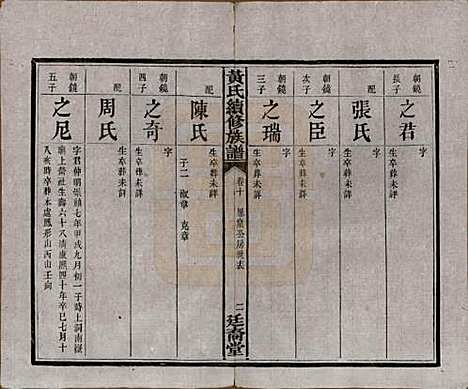 朝鏡長子
之君
字
生卒葬未詳
配
張氏
生卒葬未詳
朝鏡次子
之臣
字
生卒葬未詳
朝鏡三子
之瑞
字
生卒葬未詳
黃氏續修族譜
卷十
公房世表
二
廷裔堂
配
陳氏
生卒葬未詳
子二 淑章 克章
朝鏡四子
之奇
字
生卒葬未詳
配
周氏
生卒葬未詳
朝鏡五子
之尼
字君仲明崇禎七年甲戌九月初一子時上洞南嶽
廟上營社生壽六十八清康熙四十年辛巳七月十
八亥時卒葬本處鳳形山丙山壬向